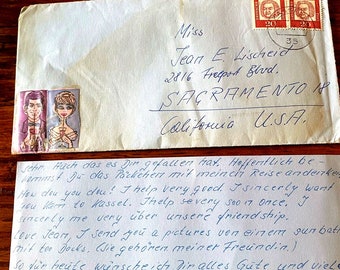 Miss
Jean E. Lischeid
2816 Freeport Blvd.
SACRAMENTO 18
California U.S.A.
20 20
Sehr. Auch das es Dir gefallen hat. Hoffentlich be-
kommst Du das Päckchen mit meinen Reiseandenken.
How dou you dou? I help very good. I sincerly want
you to Kassel. I help se very soon once. I
sincerly me very über unsere friendship.
Love Jean, I send you a pictures von einem
mit ten Docks. (Sie gehören meiner Freundin.)
So für heute wünsche ich Dir alles Gute und viele